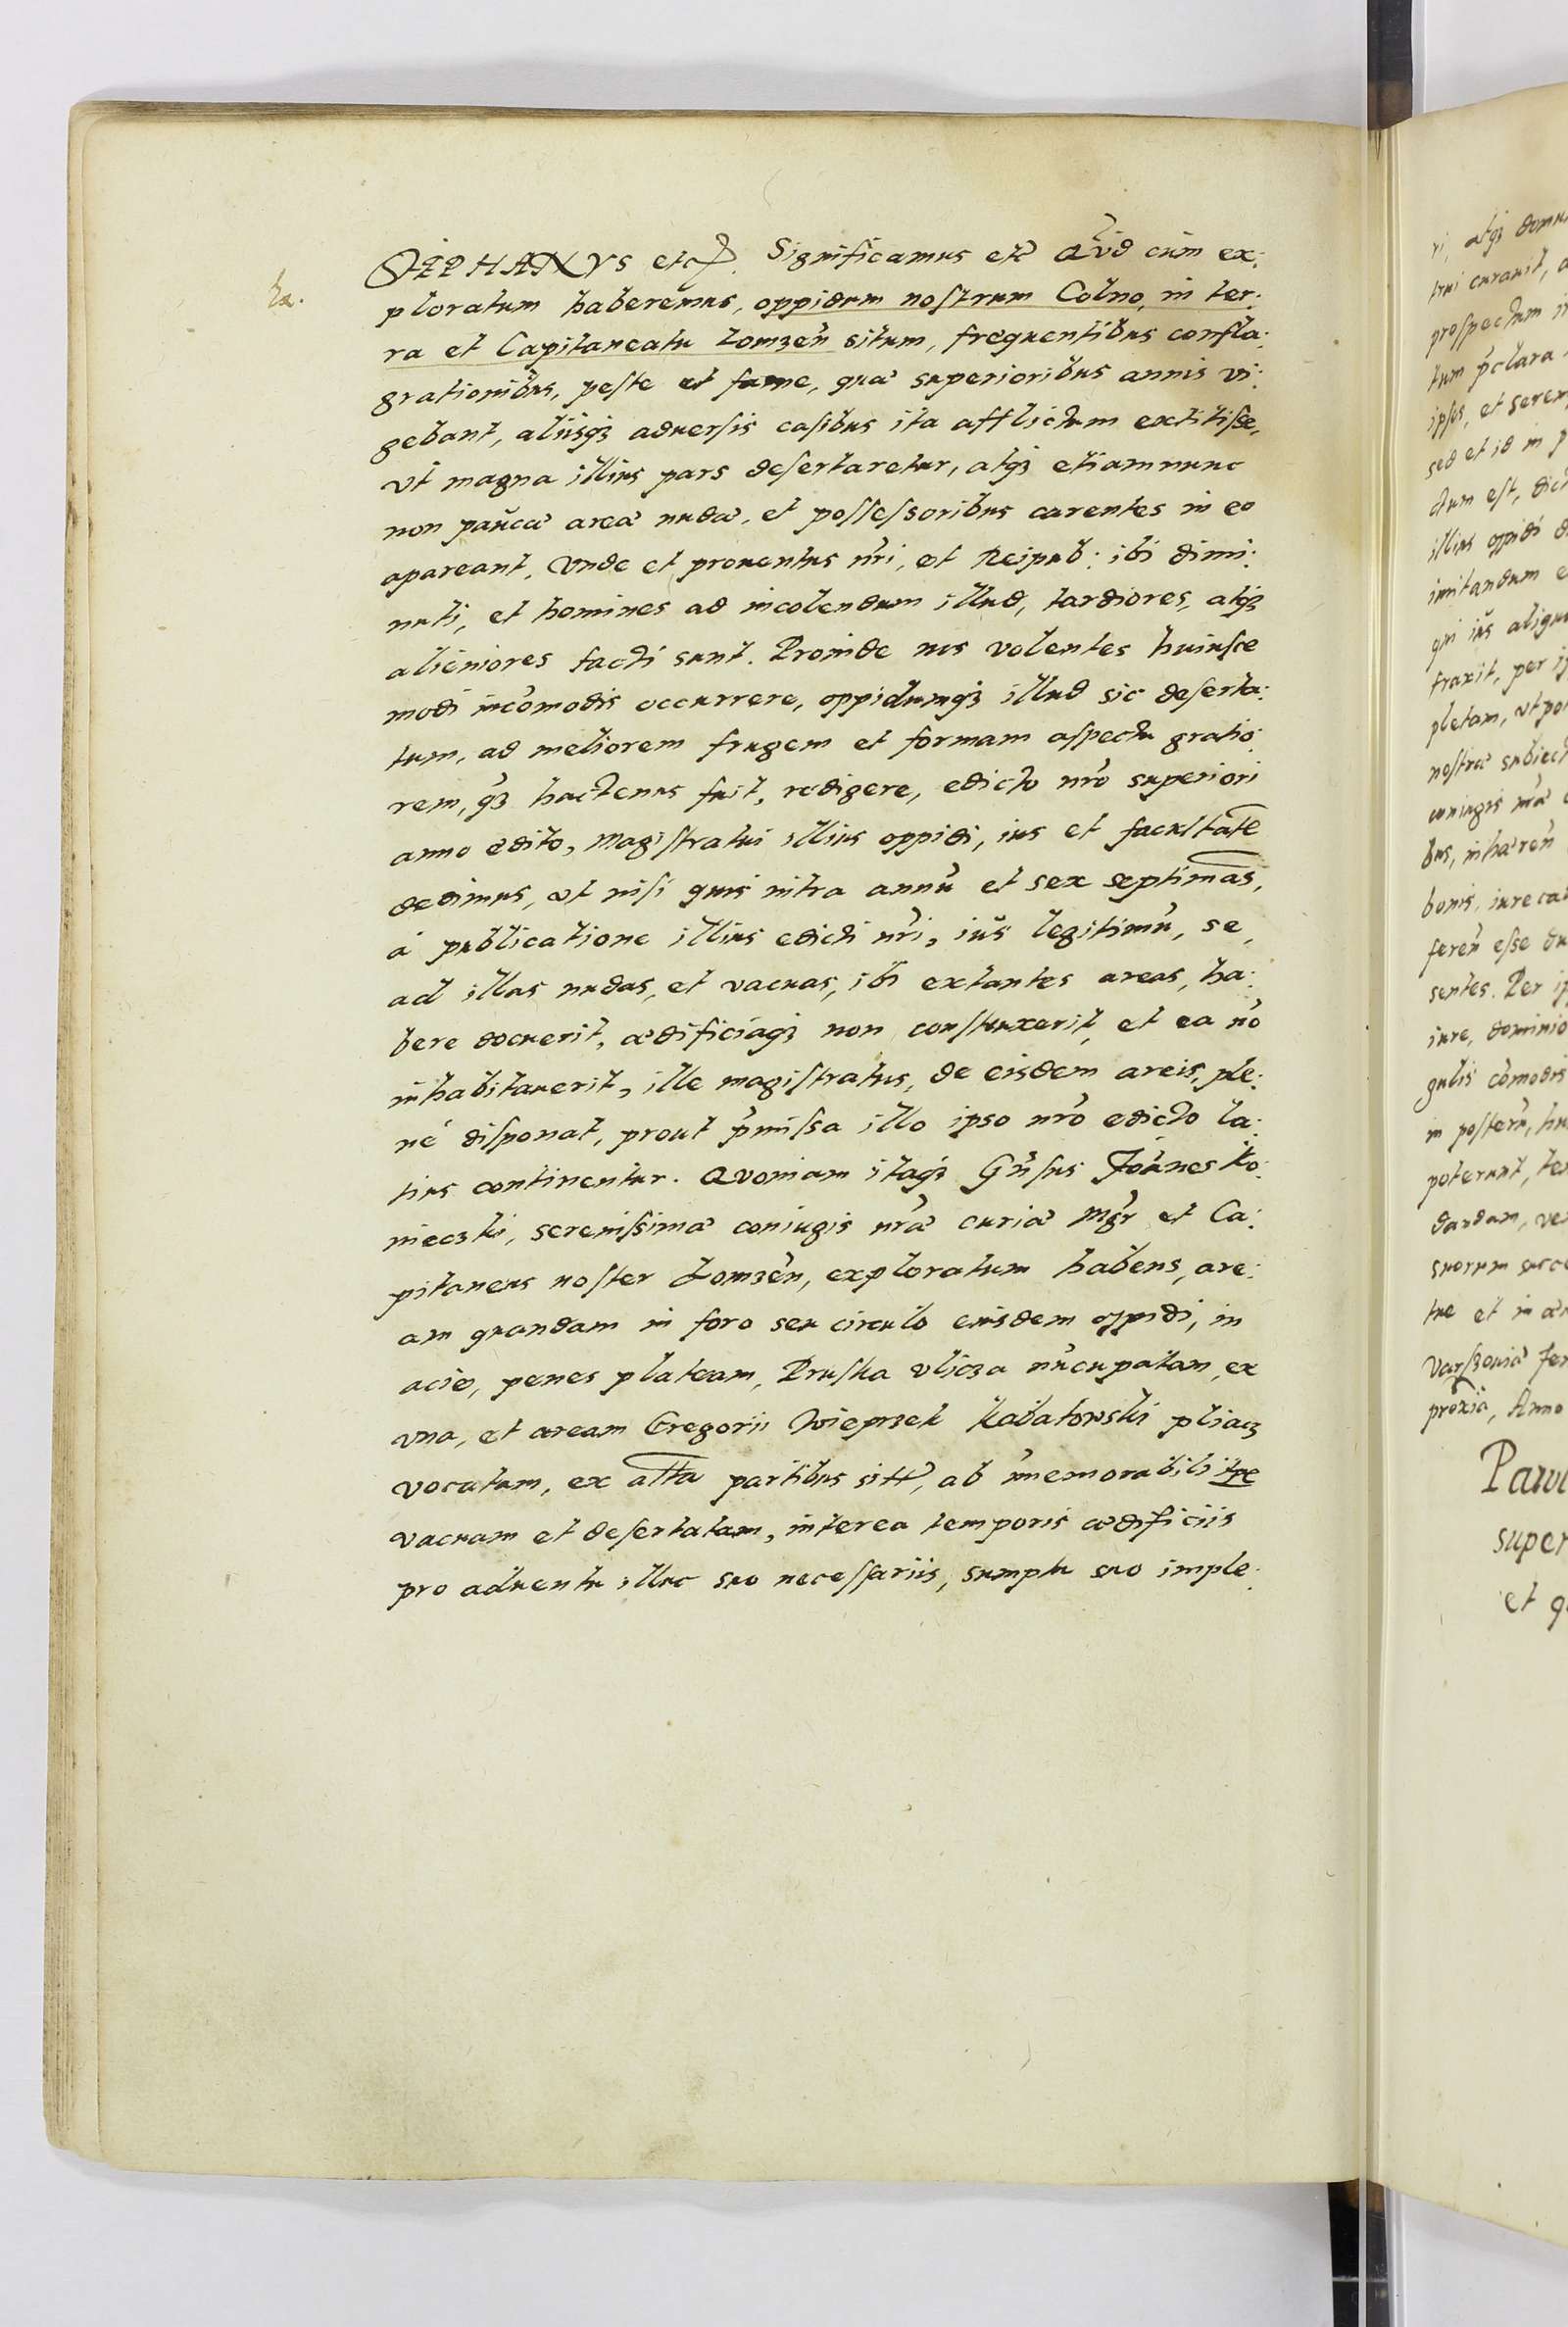 STEPHANVS etc. Significamus etc Quod cum ex:
ha.
ploratum haberemus, oppidum nostrum Colno, in ter:
ra et Capitaneatu Lomzeñ situm, frequentibus confla:
grationibus, peste et fame, quæ superioribus annis vi:
gebant, aliisqз aduersis casibus ita afflictum extitisse,
vt magna illius pars desertaretur, atqз etiamnunc
non paucæ areæ nudæ, et possessoribus carentes in eo
apareant, vnde et prouentus nr̃i, et Reipub: ibi dimi:
nuti, et homines ad incolendum illud, tardiores, atqз
alieniores facti sunt. Proinde nos volentes huiusce
modi incõmodis occurrere, oppidumqз illud sic deserta:
tum, ad meliorem frugem et formam aspectu gratio:
rem, qз hactenus fuit, redigere, edicto nr̃o superiori
anno edito, magistratui illius oppidi, ius et facultatẽ
dedimus, vt nisi quis intra annũ et sex septimanas,
à publicatione illius edicti nr̃i, iũs legitimũ, se,
ad illas nudas, et vacuas, ibi extantes areas, ha:
bere docuerit, ædificiaqз non construxerit, et ea nõ
inhabitauerit, ille magistratus, de eisdem areis, ple:
nè disponat, prout p̃missa illo ipso nr̃o edicto la:
tius continentur. Quoniam itaqз Gñsus Joãnes Ko:
nieczki, serenissimæ coniugis nr̃æ curiæ Mgr̃ et Ca:
pitaneus noster Lomzeñ, exploratum habens, are:
am quandam in foro seu circulo eiusdem oppidi, in
acie, penes plateam, Pruska vlicza nũcupatam, ex
vna, et aream Gregorii Wieprzek Kabatowski pliacz
vocatam, ex altã partibus sitã, ab im̃emorabili tp̃e
vacuam et desertatam, interea temporis ædificiis
pro aduentu illuc suo necessariis, sumptu suo imple:
ri, atqз domu
trui curauit, a
prospectum i
tum p̃clara
ipsus, et seren
sed et id in p
ctum est, dict
illius oppidi d
imitandum e
qui iũs aliqu
traxit, per i
pletam, vt po
nostræ subiect
coniugis nr̃æ
bus, inhæreñ
bonis, iure ca
fereñ esse du
sentes. Per ip
iure, dominio
gulis cõmodis
in posterũ, hu
poterunt, te
dandam, ve
suorum succe
tue et in
Varszouiæ fer
proxia, Anno
super
et q